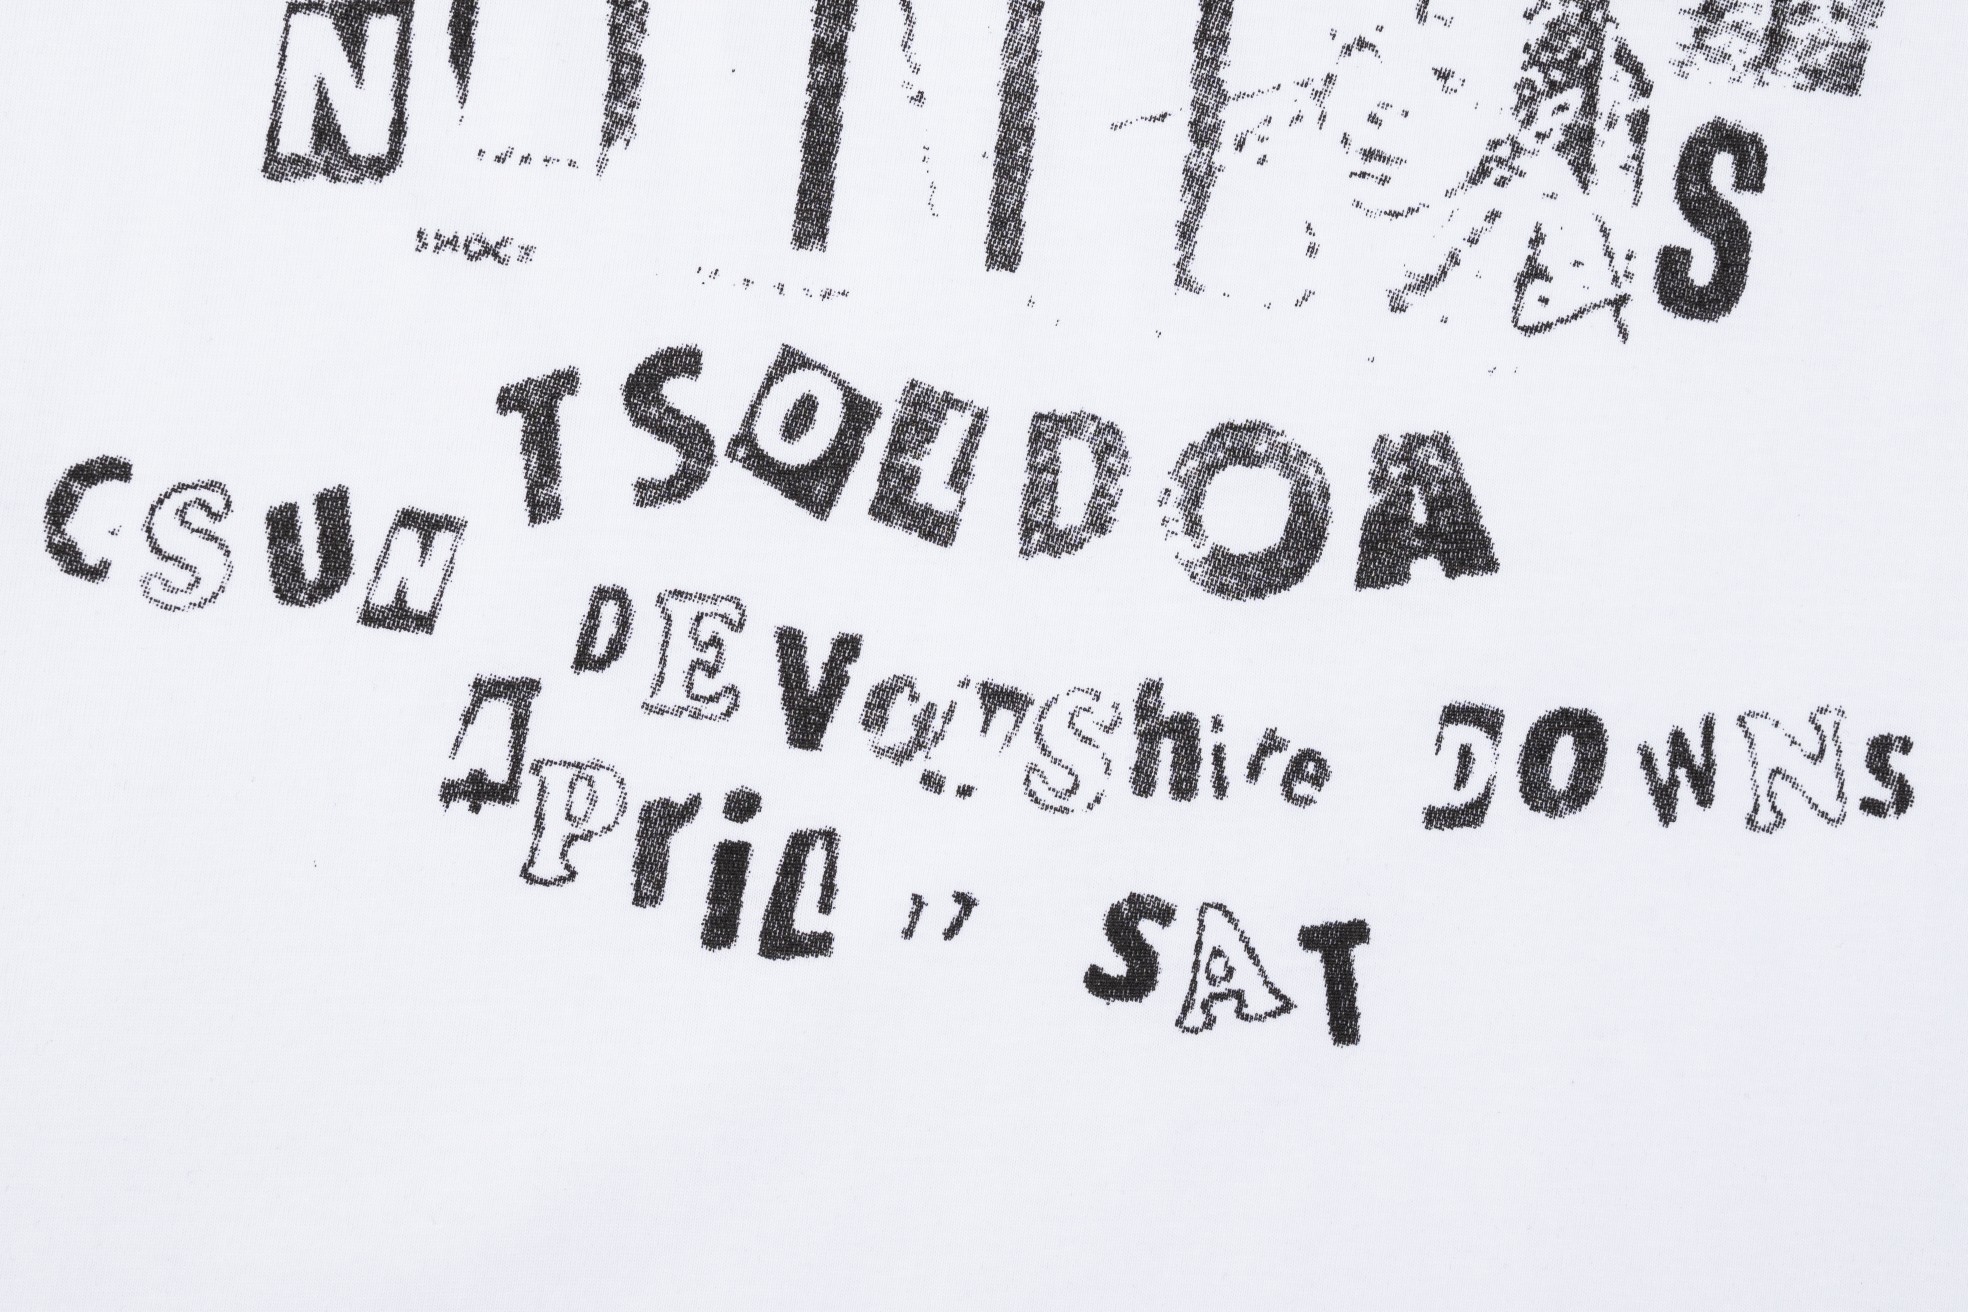 N
S
TSOLDOA
CSUN DEVONShire DOWNS
APriL 17 SAT